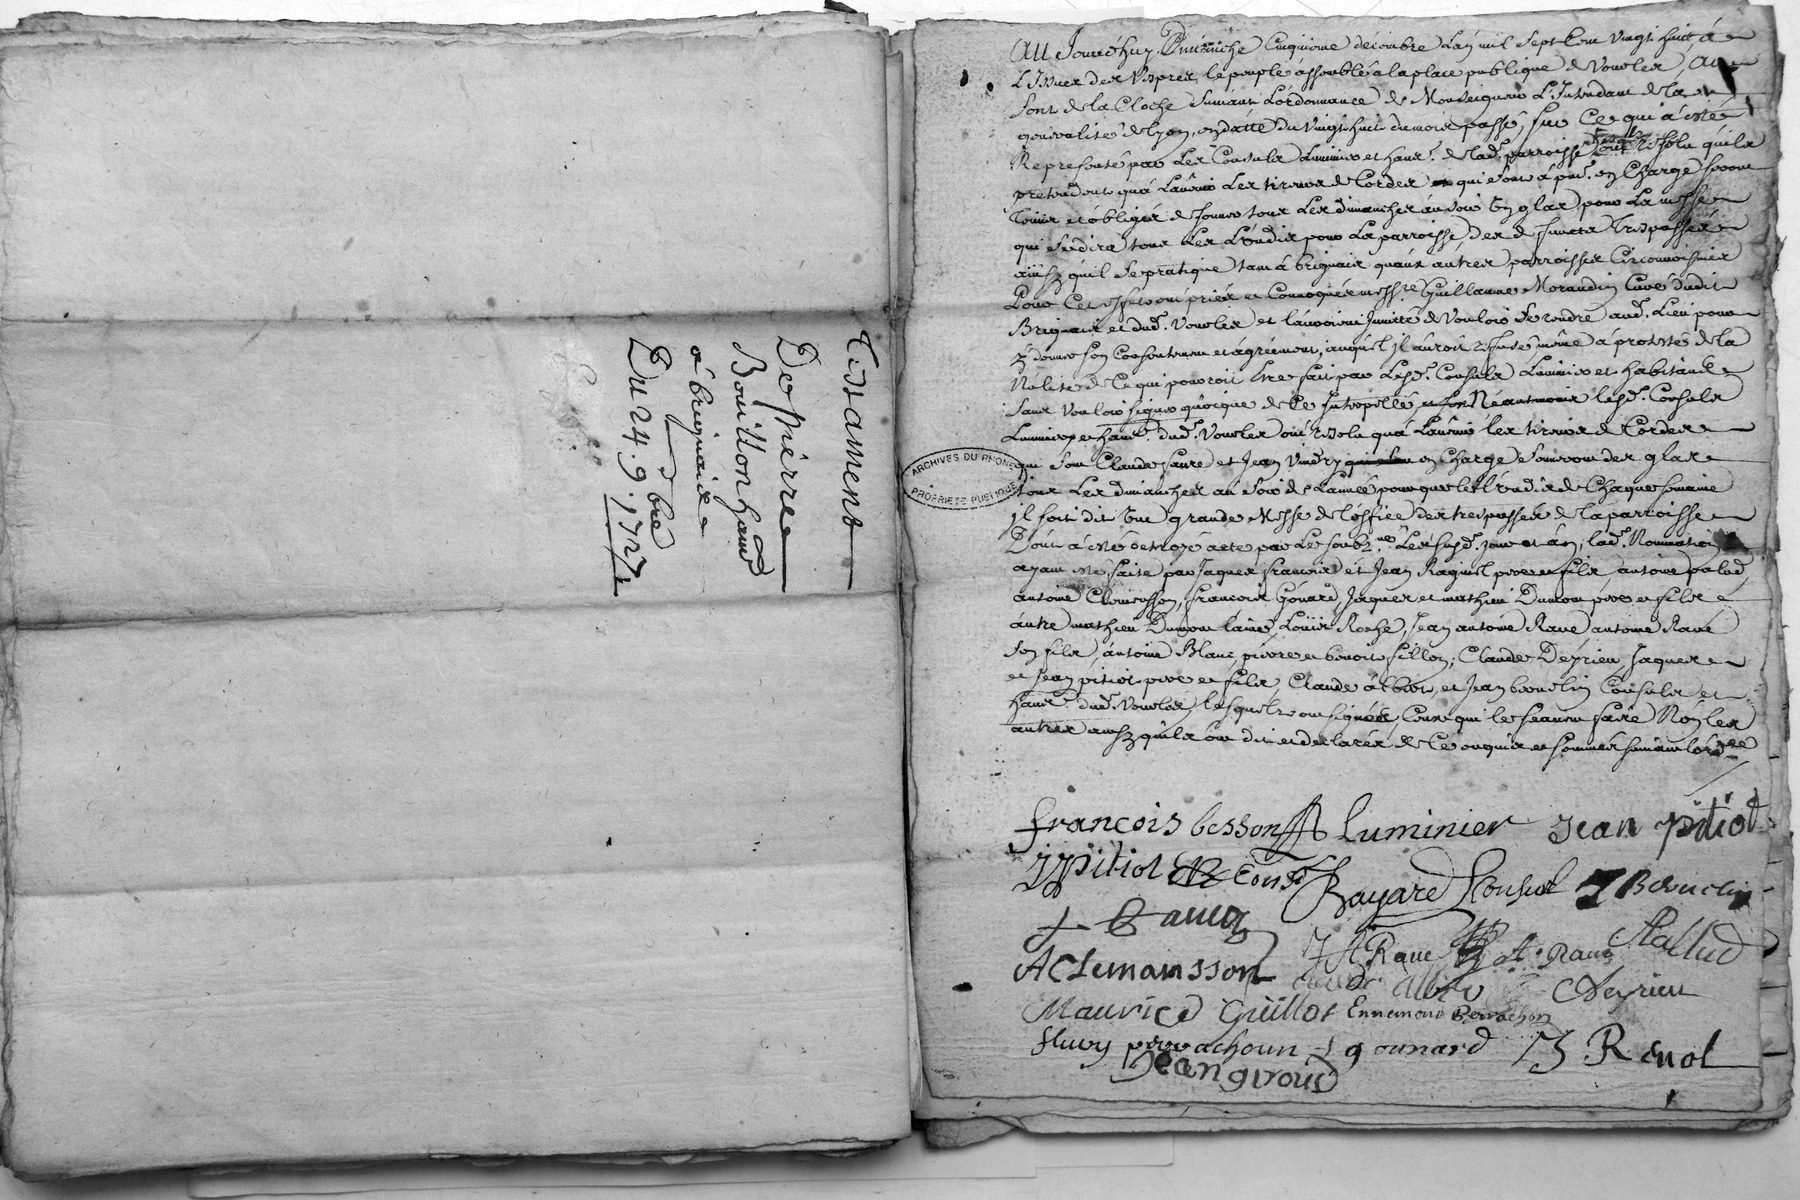 Testament
De Pierre
Bouillon hant
à brignaix
Du 24. 9.bre
1727
Au Jourd'huy Dimanche Cinquieme décembre L'an mil Sept Cent vingt huit à
L'Issuer des Vespres le peuple assemblé a la place publique de Vourles, Au
Son de la Cloche Suivant L'ordonnance de Monseigneur L'Intendant de la
généralité de Lyon, en datte du Vingt huit du mois passé, sur Ce qui a esté
Representé par Les Consuls Luminier et habt. de lad. parroisse résolu qu'ils
pretendent qu'a L'avenir Les tireurs de Cordes qui sont à pnt. en Charge seront
tenus et obligés de sonner tous Les dimanches au soir Un glas pour La messe
qui se dira tous Les Lundis pour La parroisse des deffuncts trespassés
ainsy qu'il se pratique tant à brignais qu'aux autres parroisses Circonvoisines
Pour Cet effet ont prié et Convoqué messire Guillaume Morandin Curé dudit
Brignais et dud. Vourles et l'auroient Invitté de Vouloir Se rendre aud. Lieu pour
y donner son Consentement et agréement, auquel il auroit refusé même a protesté de la
Nulité de Ce qui pourroit être fait par Lesd. Consuls Luminier et habitants
Sans Vouloir signer quoique de Ce Interpellé Néantmoins lesd. Consuls
Luminier et habts. dud. Vourles ont résolu qu'a L'avenir les tireurs de Cordes
qui sont Claude faure et Jean en Charge sonneront des glas
tous Les dimanches au soir de L'année pour que le Lundis de Chaque semaine
il soit dit Une grande Messe de L'office des trespassés de la parroisse
Dont a esté octroyé acte par Le soubz.né Les susd. jour et an, lad. Nomination
ayant été faite par Jaques francois et Jean Raginel pere et fils antoine palud
antoine Clemensson, francois Gonard, Jaques et mathieu Dumont pere et fils
autre mathieu Dumont l'ainé, Louis Roche, Jean antoine Rave antoine Rave
son fils, antoine Blanc, pierre et benoit fillon, Claude Deyrieu, Jaques
et Jean pitiot pere et fils, Claude albert, et Jean bourlin Consuls et
habts. dud. Vourles, lesquels ont signé Ceux qui le sçavent faire Non les
autres ainsy qu'ils ont dit et declaré de Ce enquis et sommés suivant l'ordce
francois besson Luminier Jean pitiot
J pitiot Consul Bayard Consul
A Clemansson J A Rave A. Rave Pallud
Claude Albert C Deyrieu
Maurice Guillot Ennemond Perrachon
fleury perrachoun gounard
Jean giroud
ARCHIVES DU RHONE
PROPRIETE PUBLIQUE